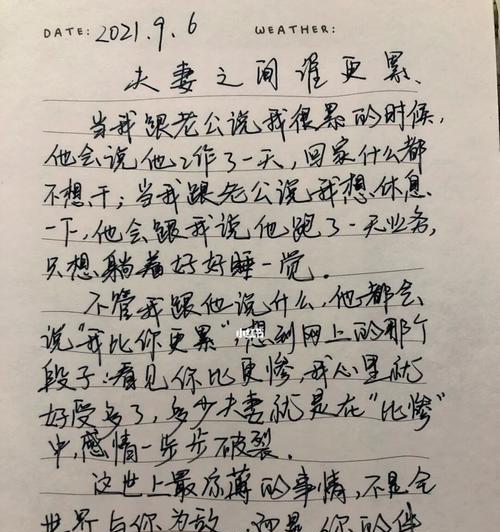 DATE: 2021.9.6 WEATHER:
夫妻之间谁更累、
当我跟老公说我很累的时候,
他会说他工作了一天,回家什么都
不想干;当我跟老公说我想休息
一下,他会跟我说他跑了一天业务,
只想躺着好好睡一觉。
不管我跟他说什么,他都会
说“我比你更累”,想到网上的那个
小红书
段子:看见你比更惨,我心里就
好受多了,多少夫妻就是在“比惨”
中,感情一步步破裂。
这世上最凉薄的事情,不是全
世界与你为敌,而是你的伴